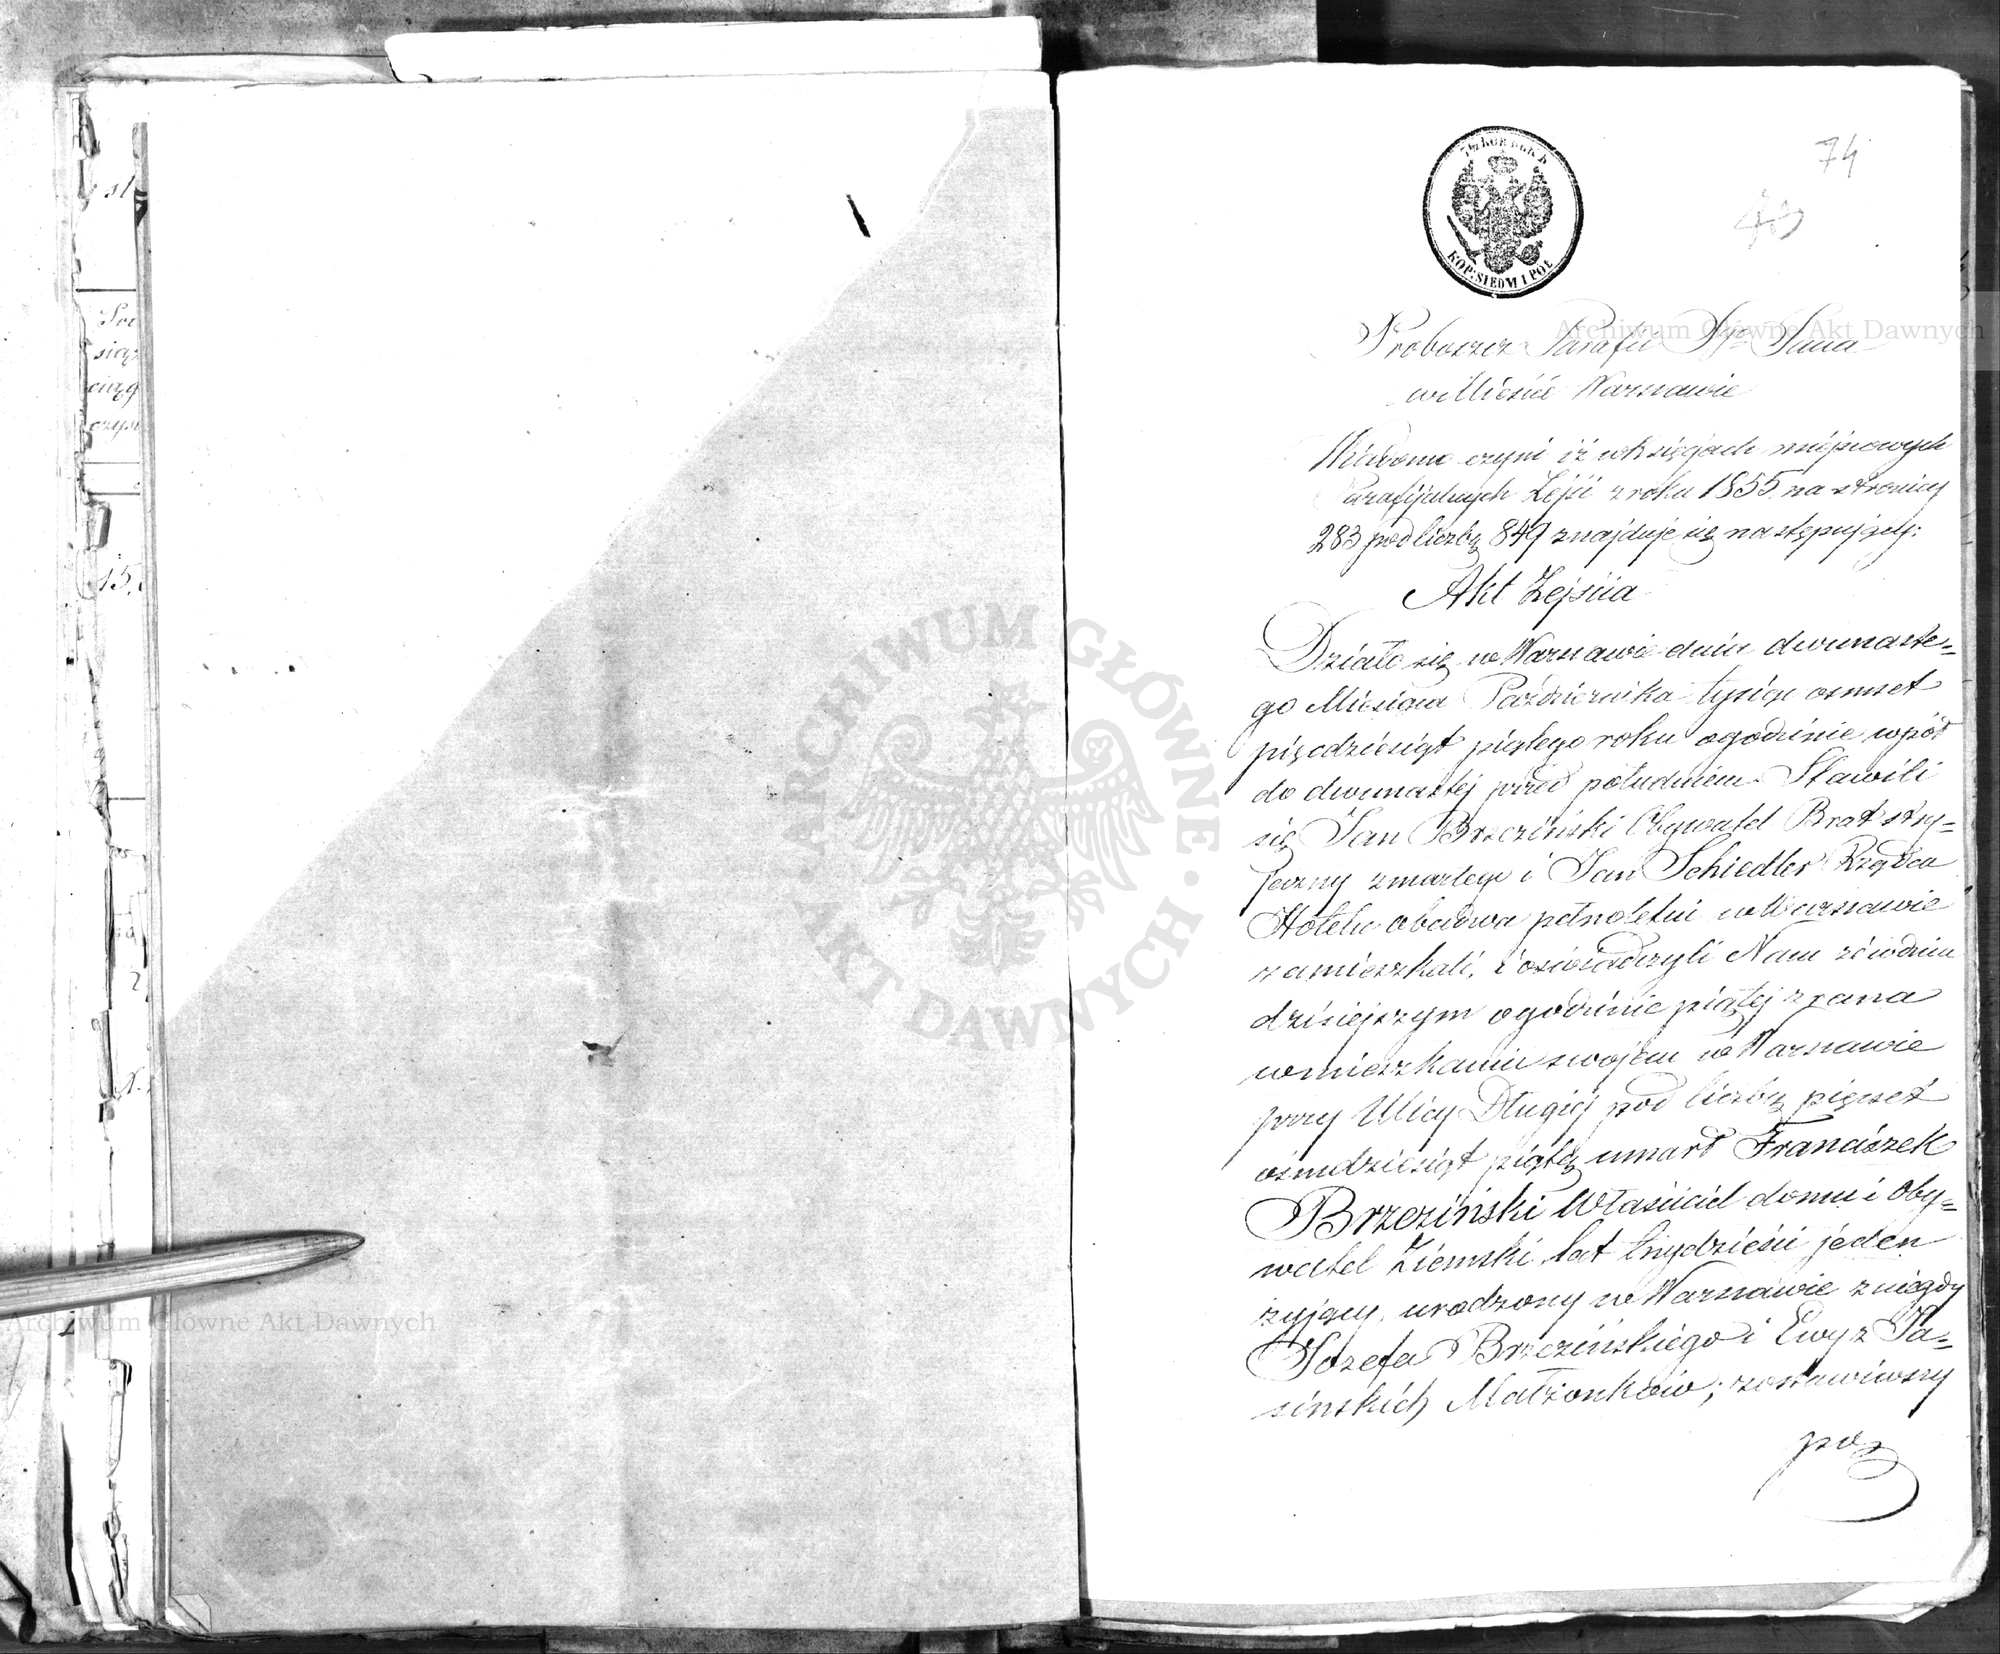 74
7½ КОПѢЕКЪ
KOP: SIEDM I PÓŁ
Proboszcz Parafii Sgo Jana
w Mieście Warszawie
Wiadomo czyni iż w księgach miejscowych
Parafijalnych Zejść z roku 1855 na stronicy
283 pod liczbą 849 znajduje się następujący:
Akt Zejścia
Działo się w Warszawie dnia dwunaste=
go Miesiąca Października tysiąc osmset
pięćdziesiąt piątego roku o godzinie wpół
do dwunastej przed południem. Stawili
się Jan Brzeziński Obywatel Brat stry=
jeczny zmarłego i Jan Schiedler Rządca
Hotelu obadwa pełnoletni w Warszawie
zamieszkali, i oświadczyli Nam że w dniu
dzisiejszym o godzinie piątej z rana
w mieszkaniu swojem w Warszawie
przy Ulicy Długiej pod liczbą pięćset
ośmdziesiąt piątą umarł Franciszek
Brzeziński Właściciel domu i Oby=
watel Ziemski, lat trzydzieści jeden
żyjący, urodzony w Warszawie z niegdy
Józefa Brzezińskiego i Ewy z Ja=
sińskich Małżonków; zostawiwszy
po
Archiwum Główne Akt Dawnych
ARCHIWUM GŁÓWNE · AKT DAWNYCH ·
Archiwum Główne Akt Dawnych